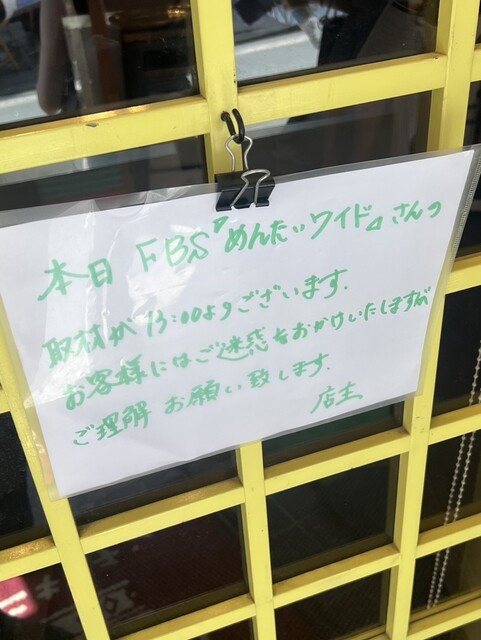 本日 FBS『めんたいワイド』さんの
取材が 13:00よりございます.
お客様にはご迷惑をおかけいたしますが
ご理解 お願い致します.
店主